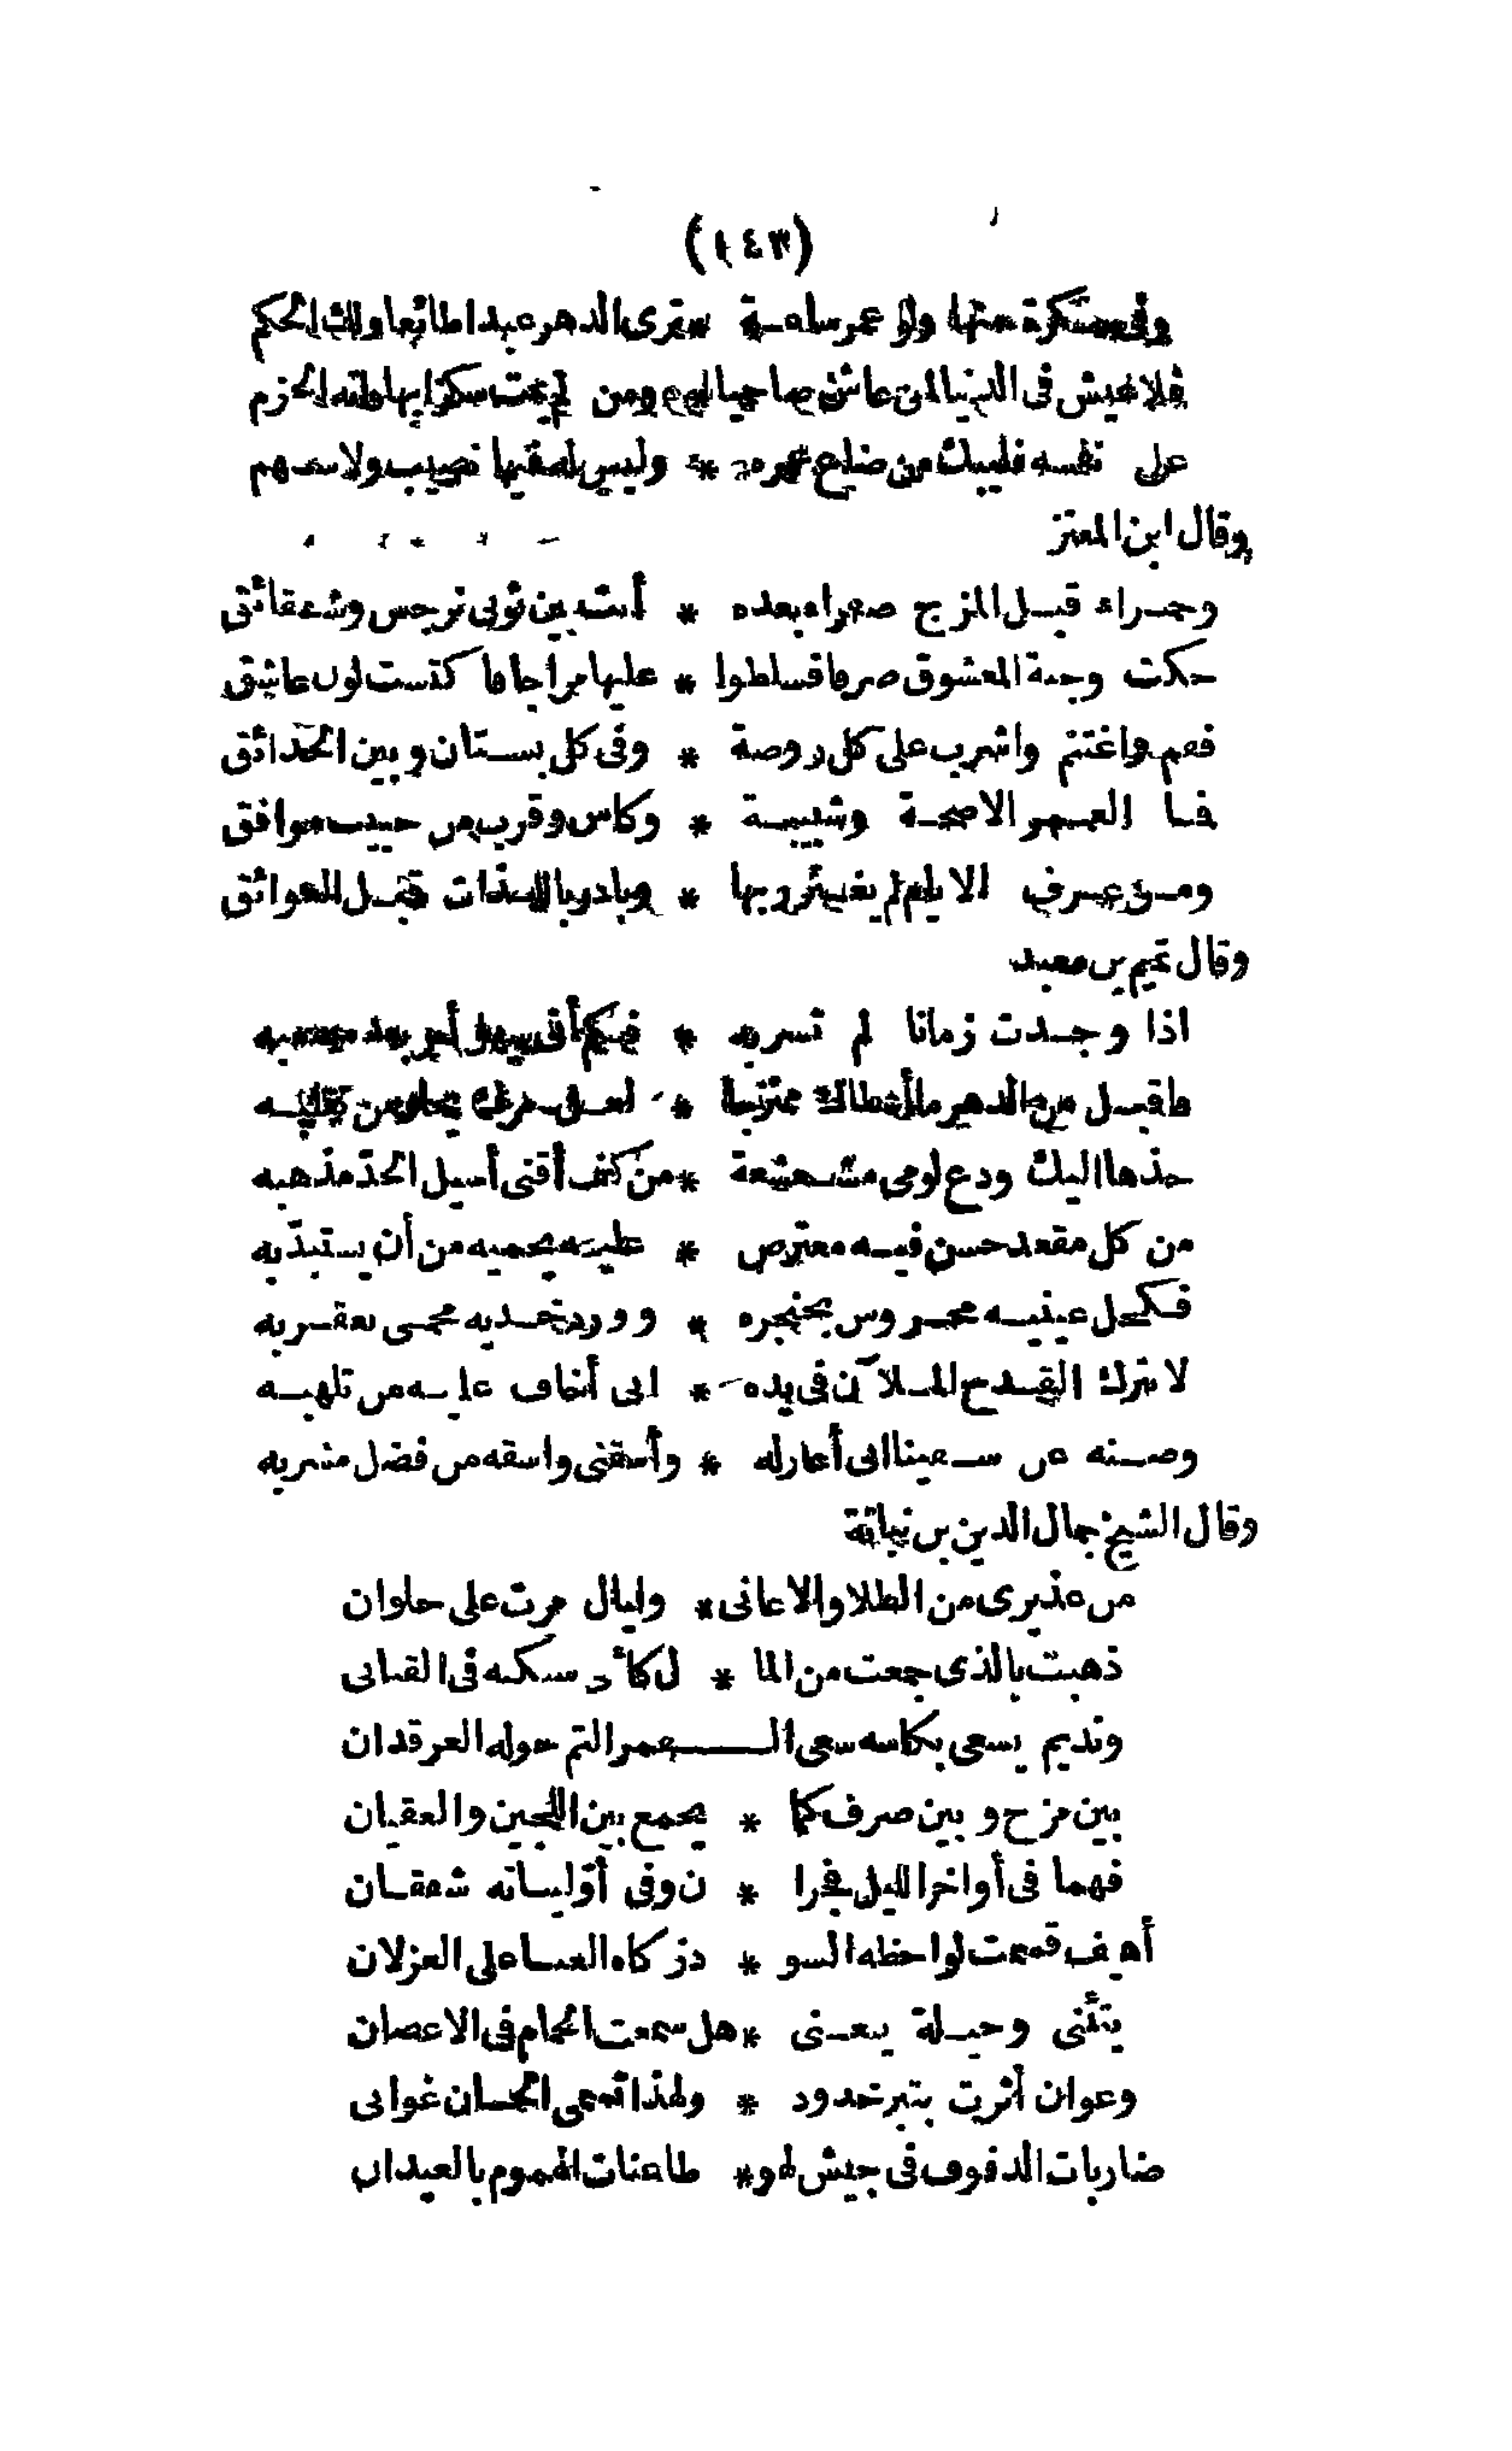 (١٤٣)
وفى سكرة منها ولو عمر ساعة ترى الدهر عبدا طائعا ولك الحكم
فلا عيش فى الدنيا لمن عاش صاحيا ومن لم يمت سكرا بها فاته الحزم
على نفسه فليبك من ضاع عمره * وليس له فيها نصيب ولا سهم
وقال ابن المعتز
وحمراء قبل المزج صفراء بعده * أتت بين ثوبى نرجس وشقائق
حكت وجنة المعشوق صرفا فسلطوا * عليها مزاجا فاكتست لون عاشق
فقم واغتنم واشرب على كل روضة * وفى كل بستان وبين الحدائق
فما العمر الا صحة وشبيبة * وكاس وقرب من حبيب موافق
ومن عرف الايام لم يغترر بها * وبادر باللذات قبل العوائق
وقال تميم بن معبد
اذا وجدت زمانا لم تسر به * فكم أتى
فاقبل من الدهر ما أعطاك * من تقلبه
خذها اليك ودع لومى مشعشعة * من كف أقنى أسيل الخد مذهبه
من كل مقعد حسن فيه معترض * عليه يحميه من أن يستبد به
فكحل عينيه محروس بخنجره * وورد خديه محمى بعقربه
لا تترك القدح الملآن فى يده * انى أخاف عليه من تلهبه
وصنه عن سقينا انى أغار له * وأسقنى واسقه من فضل مشربه
وقال الشيخ جمال الدين بن نباتة
من عذيرى من الطلا والاغانى * وليال مرت على حلوان
ذهبت بالذى جمعت من الما * ل كأن سكنه فى القنانى
ونديم يسعى بكاسه سعى الـقمر التم حوله الفرقدان
بين مزج وبين صرف كما * يجمع بين اللجين والعقيان
فهما فى أواخر الليل فجرا * ن وفى أوليباته شفقان
أهيف قمت لواحظه السو * د زكاة الصبا على الغزلان
يتثنى وحيلة يغنى * هل سمعت الحمام فى الاغصان
وغوان أثرت بتبر خدود * ولهذا تسمى الحسان غوانى
ضاربات الدفوف فى جيش لهو * طاعنات الهموم بالعيدان